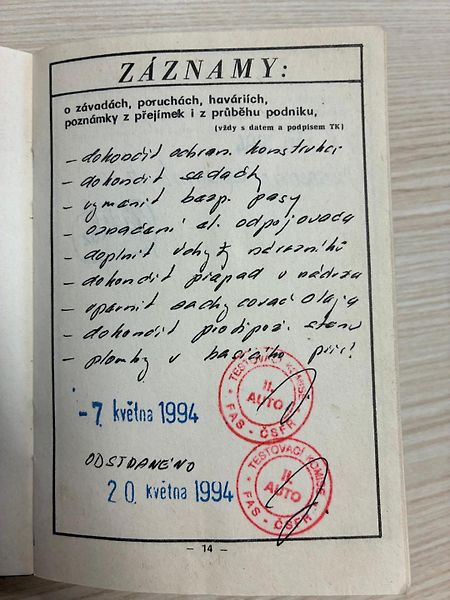 ZÁZNAMY:
o závadách, poruchách, haváriích,
poznámky z přejímek i z průběhu podniku,
(vždy s datem a podpisem TK)
- dokončit ochran. konstrukci
- dokončit sedačky
- vyměnit bezp. pasy
- označení el. odpojovače
- doplnit úchyty nárazníků
- dokončit v
- upevnit zachycovač oleje
- dokončit protipož. stěnu
- plomby v
-7. května 1994
TESTOVACÍ KOMISE
II.
AUTO
FAS - ČSFR
ODSTRANĚNO
20. května 1994
TESTOVACÍ KOMISE
II.
AUTO
FAS - ČSFR
- 14 -